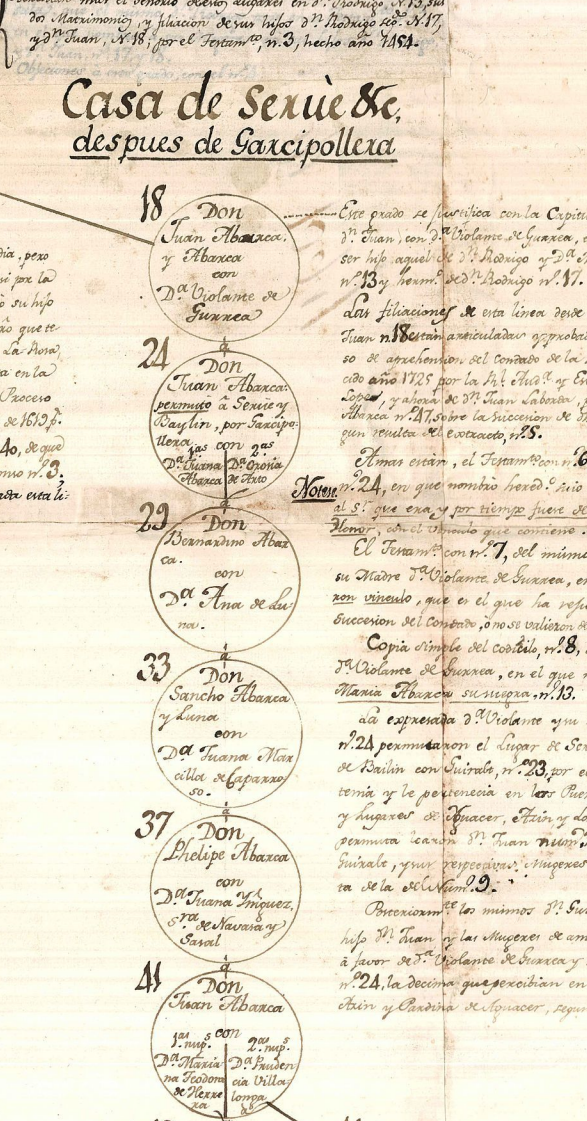 dos Matrimonios, y filiacion de sus hijos dn. Rodrigo sco. N.17,
y dn. Juan, N.18; por el Testamto, n.3, hecho año 1454.
Casa de Serúe &c,
despues de Garcipollera
18
Don
Juan Abarca,
y Abarca
con
Da Violante de
Gurrea
24
Don
Juan Abarca
permutó â Serúe y
Baylin, por Garcipo-
llera
1as con 2as
Da Juana Da Oronia
Abarca de Arto
29
Don
Bernardino Abar
ca.
con
Da Ana de Lu-
na.
33
Don
Sancho Abarca
y Luna
con
Da Juana Mar
cilla de Caparro-
so.
37
Don
Phelipe Abarca
con
Da Juana Yñiguez,
sra de Navasa y
Sasal
41
Don
Juan Abarca
1as nups con 2as nups
Da Maria Da Pruden
na Teodora cia Villa-
de Herre longa
ra
Este grado se justifica con la Capitu
dn. Juan, con da Violante de Gurrea,
ser hijo aquel de dn. Rodrigo y Da
no.13 y hermo de dn. Rodrigo no.17.
Las filiaciones de esta linea desde
Juan n.18 estàn articuladas y probad
so de aprehension del Condado de la
cido año 1725 por la Rl. Auda y
Lopes, y ahora de dn. Juan Laborda,
Abarca no.47, sobre la succesion de
gun resulta del extracto, no.5.
A mas estàn, el Testamto con no.6
Notese no.24, en que nombrò hered.o
al sr. que era y por tiempo fuere de
Honor, con el vinculo que contiene.
El Testamto con no.7, del mismo
su Madre da Violante de Gurrea, en
ron vinculo, que es el que ha
succesion del Condado, ò no se valieron
Copia simple del codicilo, no.8,
da Violante de Gurrea, en el que
Maria Abarca su suegra, no.13.
La expresada da Violante y su
no.24 permutaron el Lugar de Ser
de Bailin con Guiralt, no.23, por
tenia y le pertenecia en los Puer
y Lugares de Aguacer, Azin y
permuta loaron dn. Juan num.
Guiralt, y sus respectivas Mugeres
ta de la del Num.o 9.
Posteriormte los mismos dn. Gui
hijo dn. Juan y las Mugeres de am
â favor de da Violante de Gurrea y
no.24, la decima que percibian en
Azin y Pardina de Aguacer, segun
dia, pero
si por la
o su hijo
que te
La Rosa,
en la
Proceso
de 1619 p.
40, de que
no.3,
esta li-